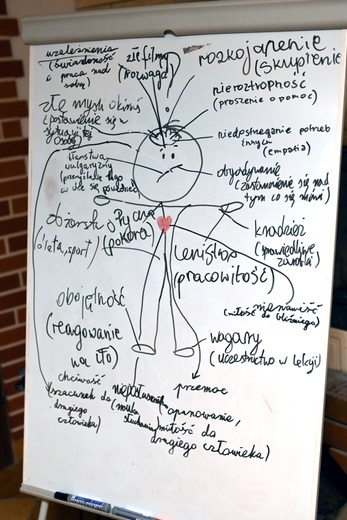 uzależnienia
(świadomość
i praca nad
sobą)
złe filmy
(rozwaga)
rozkojarzenie
(skupienie
nieroztropność
(proszenie o pomoc)
złe myśli o kimś
(postawienie się w
sytuacji
osoby)
niedostrzeganie potrzeb
innych
(empatia)
kłamstwa,
wulgaryzmy
(przemyślenie tego
w się powiedzieć)
obgadywanie
(zastanowienie się nad
tym co się mówi)
obżarstwo
(dieta, sport)
pycha
(pokora)
kradzież
(sprawiedliwe
zarobki)
Lenistwo
(pracowitość)
nienawiść
(miłość do bliźniego)
obojętność
(reagowanie
na zło)
wagary
(uczestnictwo w lekcji)
chciwość
(szacunek do
drugiego
człowieka)
nieposłuszeństwo
(nauka
słuchania)
przemoc
(opanowanie,
miłość do
drugiego człowieka)